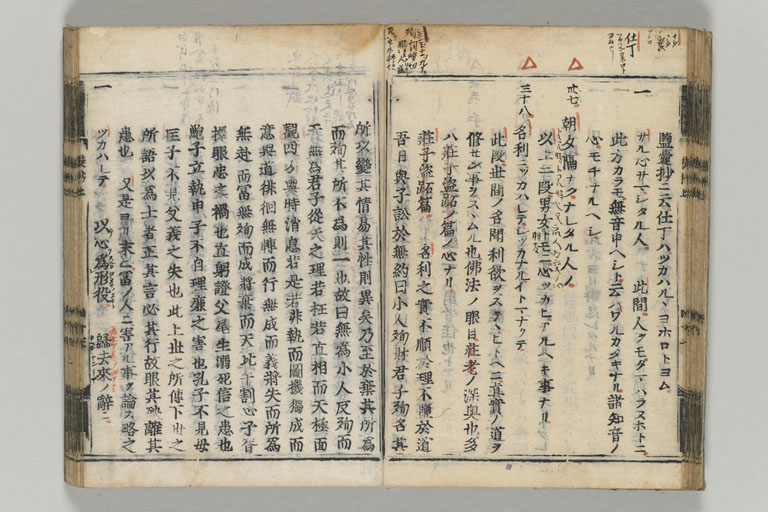 仕丁
一
壒嚢抄ニ云仕丁ハツカハルヽヨホロトヨム
サル心サマシタル人 此間人クモタヽハラスホトニ
此方カラモ無音申ヘシト云ハワルカタキナル諸知音ノ
心モチナルヘシ
卅七 朝夕隔ナクナレタル人ノ
以上二段男女トモニ心ツカヒアルヘキ事ナリ
三十八 名利ニツカハレテシツカナルイトマナクテ
此段世間ノ名聞利欲ヲステヽヒトヘニ真實ノ道ヲ
修セン事ヲスヽムル也佛法ノ眼目荘老ノ深奥也多
ハ荘子盗跖ノ篇ノ心ナリ
荘子盗跖篇 名利之實不順於理不順於道
吾日與子訟於無約曰小人殉財君子殉名其
所以變其情易其性則異矣乃至於棄其所為
而殉其所不為則一也故曰無為小人反殉而
天無為君子從天之理若枉若直相而天極面
觀四方與時消息若是若非執而圓機獨成而
意與道徘徊無轉而行無成而義將失而所為
無赴而冨無殉而成將棄而天比干剖心子胥
抉眼忠之禍也直躬證父尾生溺死信之患也
鮑子立乾申子不自理廉之害也孔子不見母
匡子不見父義之失也此上世之所傳下世之
所語以為士者正其言必其行故服其殃離其
患也 又是ヨリ末ニ冨ノ人ニ害アル事ヲ論ス略之
ツカハレテ 以心為形役 歸去來ノ辭ニ
一